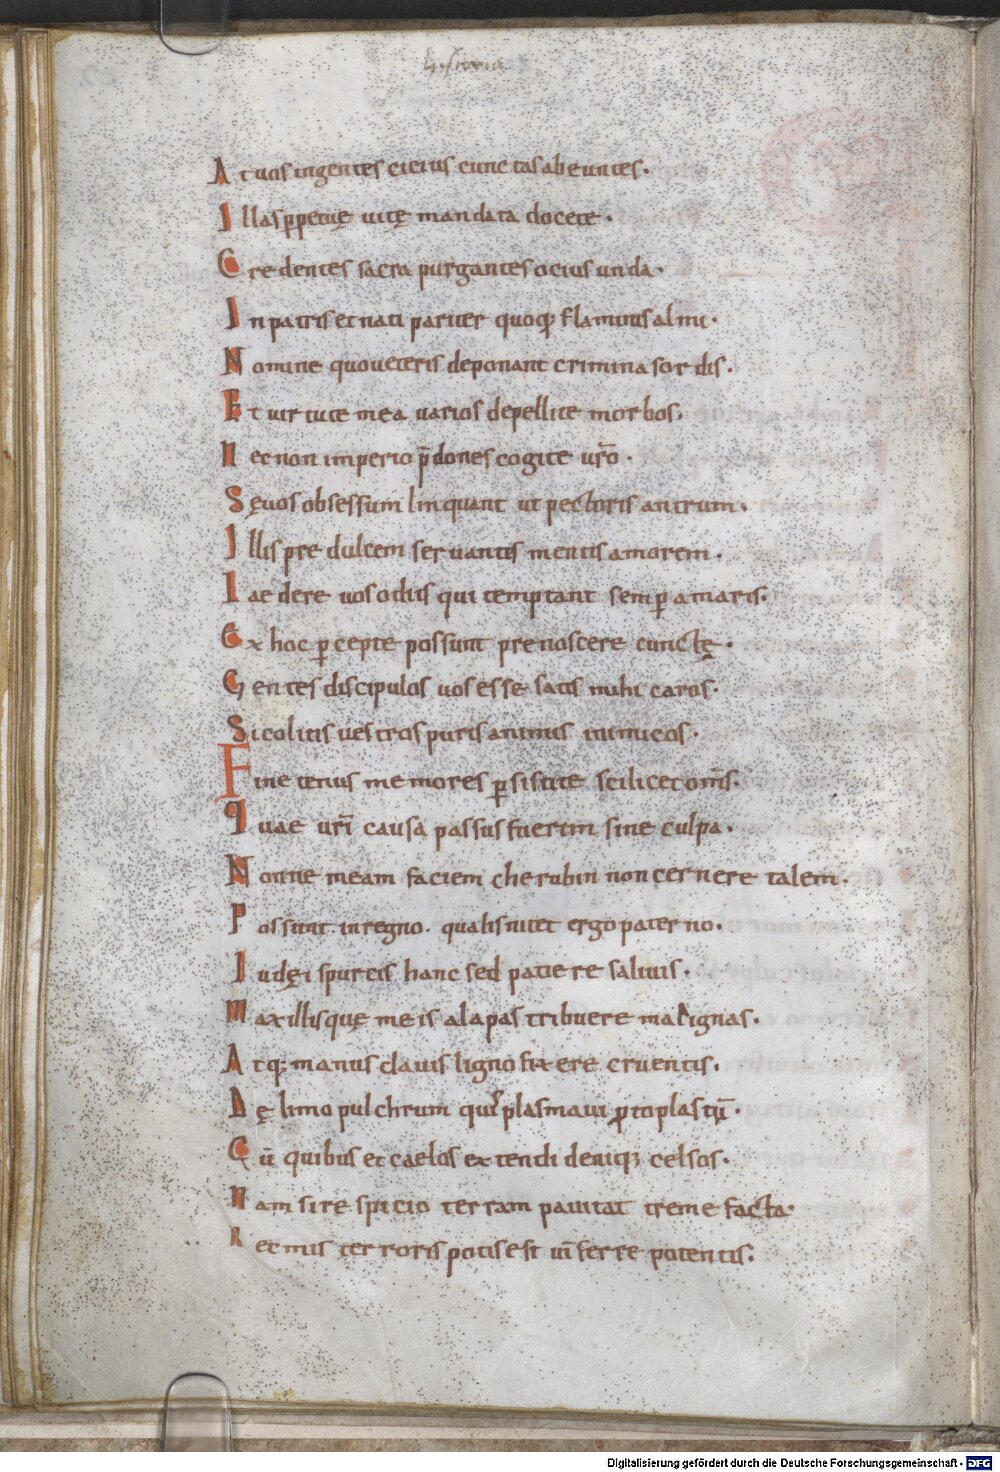 historia
At uos ingentes cicius cunctas abeuntes.
Illas ꝑpetuę uitę mandata docete.
Credentes sacra purgantes ocius unda.
In patris et nati pariter quoq; flaminis almi.
Nomine quo ueteris deponant crimina sordis.
Et uirtute mea uarios depellite morbos.
Nec non imperio p̄dones cogite ur̄o.
Sęuos obsessum linquant ut pectoris antrum.
Illis pre dulcem seruantes mentis amorem.
Laedere uos odiis qui temptant semꝑ amaris.
Ex hoc ꝑcepte possunt prenoscere cunctę.
Gentes discipulos uos esse satis mihi caros.
Si colitis uestros puris animis inimicos.
Fine tenus memores ꝑsistite scilicet om̄s.
Quae ur̄i causa passus fuerim sine culpa.
Nonne meam faciem cherubin non cernere talem.
Possunt in regno. qualis nitet ergo pater no.
Iudęi spurcis hanc sed patiere saliuis.
Maxillisquę meis alapas tribuere malignas.
Atq; manus clauis ligno fixere cruentis.
Dę limo pulchrum quis plasmaui ꝓtoplastū.
Cū quibus et caelos extendi deniq; celsos.
Nam si respicio terram pauitat tremefacta.
Nec mis terroris potis est uī ferre potentis.
Digitalisierung gefördert durch die Deutsche Forschungsgemeinschaft - DFG